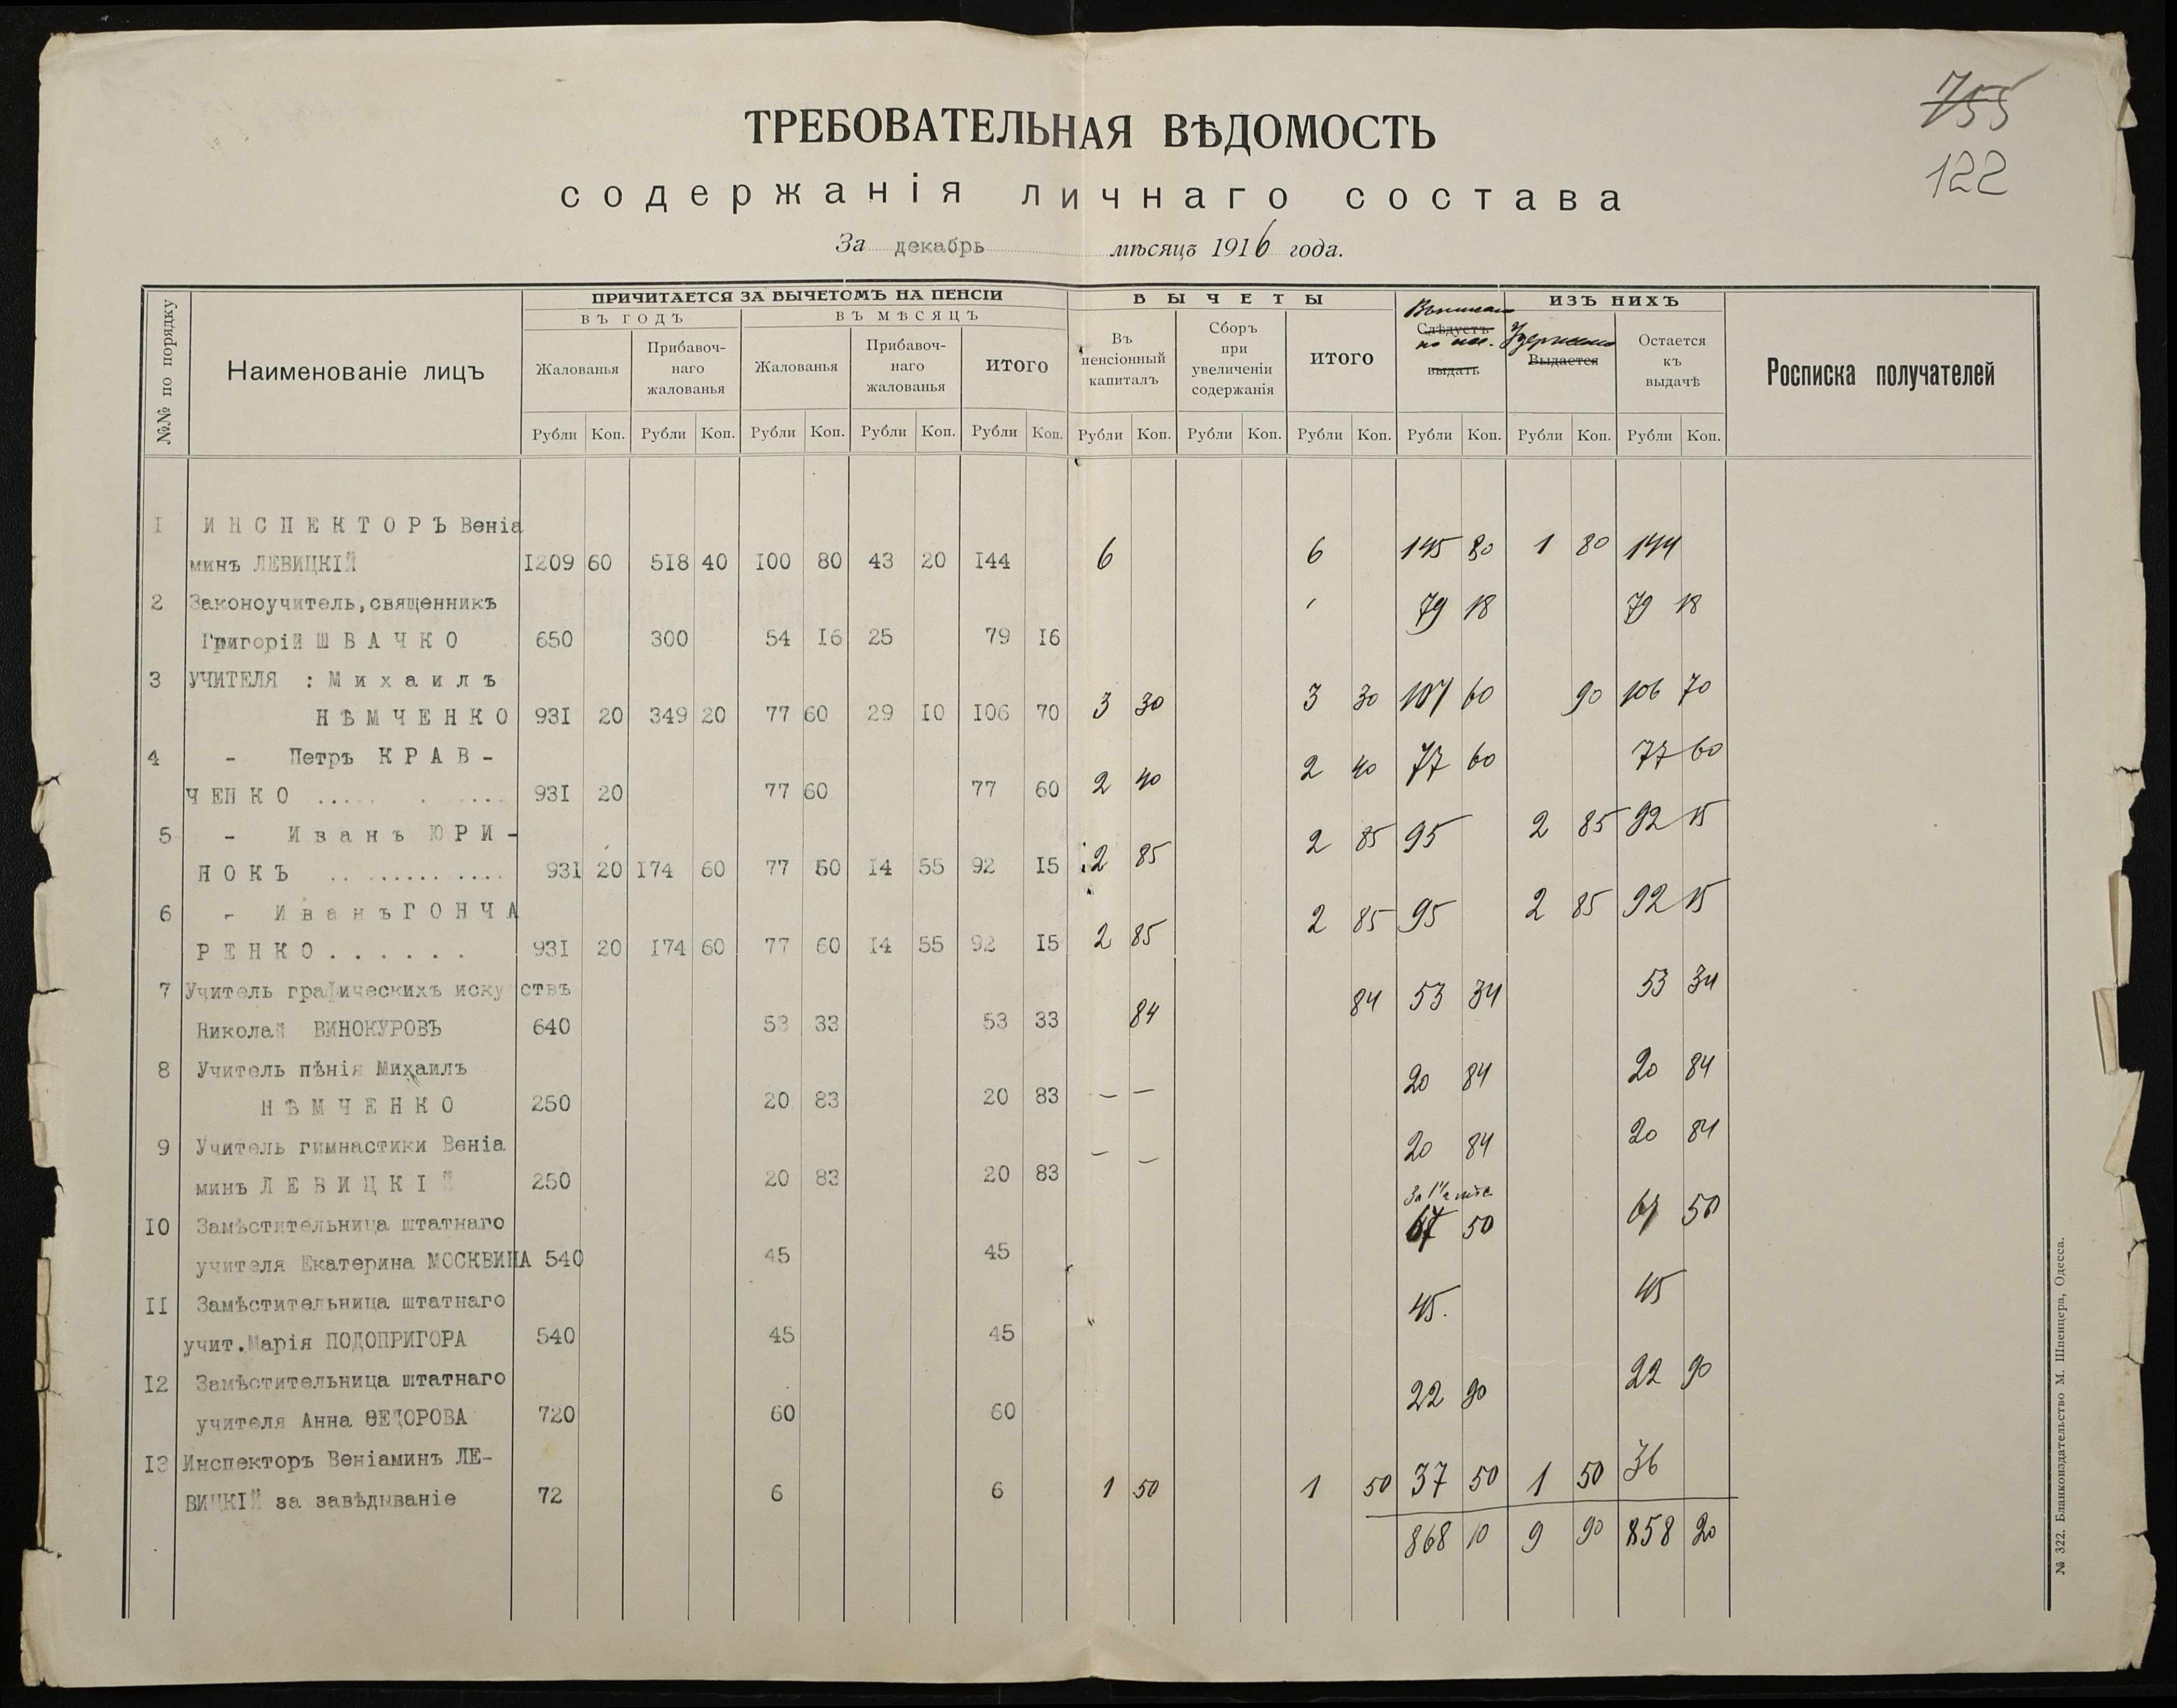 755
122
ТРЕБОВАТЕЛЬНАЯ ВѢДОМОСТЬ
содержанія личнаго состава
За декабрь мѣсяцъ 1916 года.
№№ по порядку
Наименованіе лицъ
ПРИЧИТАЕТСЯ ЗА ВЫЧЕТОМЪ НА ПЕНСІИ
ВЪ ГОДЪ
ВЪ МѢСЯЦЪ
Жалованья
Прибавоч-
наго
жалованья
Жалованья
Прибавоч-
наго
жалованья
ИТОГО
ВЫЧЕТЫ
Въ
пенсіонный
капиталъ
Сборъ
при
увеличеніи
содержанія
ИТОГО
Слѣдуетъ
выдать
ИЗЪ НИХЪ
Удержано
Выдается
Остается
къ
выдачѣ
Росписка получателей
Рубли Коп. Рубли Коп. Рубли Коп. Рубли Коп. Рубли Коп. Рубли Коп. Рубли Коп. Рубли Коп. Рубли Коп. Рубли Коп. Рубли Коп.
I ИНСПЕКТОРЪ Веніа
минъ ЛЕВИЦКІЙ I209 60 5I8 40 I00 80 43 20 I44 6 6 145 80 1 80 144
2 Законоучитель,священникъ
Григорій ШВАЧКО 650 300 54 I6 25 79 I6 79 18 79 18
3 УЧИТЕЛЯ : Михаилъ
НѢМЧЕНКО 93I 20 349 20 77 60 29 I0 I06 70 3 30 3 30 107 60 90 106 70
4 - Петръ КРАВ-
ЧЕНКО ..... . .... 93I 20 77 60 77 60 2 40 2 40 77 60 77 60
5 - Иванъ ЮРИ-
НОКЪ .. .......... 93I 20 I74 60 77 60 I4 55 92 I5 2 85 2 85 95 2 85 92 15
6 - Иванъ ГОНЧА
РЕНКО . . . . . . 93I 20 I74 60 77 60 I4 55 92 I5 2 85 2 85 95 2 85 92 15
7 Учитель графическихъ искуствъ
Николай ВИНОКУРОВЪ 640 53 33 53 33 84 84 53 34 53 34
8 Учитель пѣнія Михаилъ
НѢМЧЕНКО 250 20 83 20 83 — — 20 84 20 84
9 Учитель гимнастики Веніа
минъ ЛЕВИЦКІЙ 250 20 83 20 83 — — 20 84 20 84
I0 Замѣстительница штатнаго
учителя Екатерина МОСКВИНА 540 45 45 67 50 67 50
II Замѣстительница штатнаго
учит.Марія ПОДОПРИГОРА 540 45 45 45. 45
I2 Замѣстительница штатнаго
учителя Анна ѲЕДОРОВА 720 60 60 22 90 22 90
I3 Инспекторъ Веніаминъ ЛЕ-
ВИЦКІЙ за завѣдываніе 72 6 6 1 50 1 50 37 50 1 50 36
868 10 9 90 858 20
№ 322. Бланкоиздательство М. Шпенцера, Одесса.